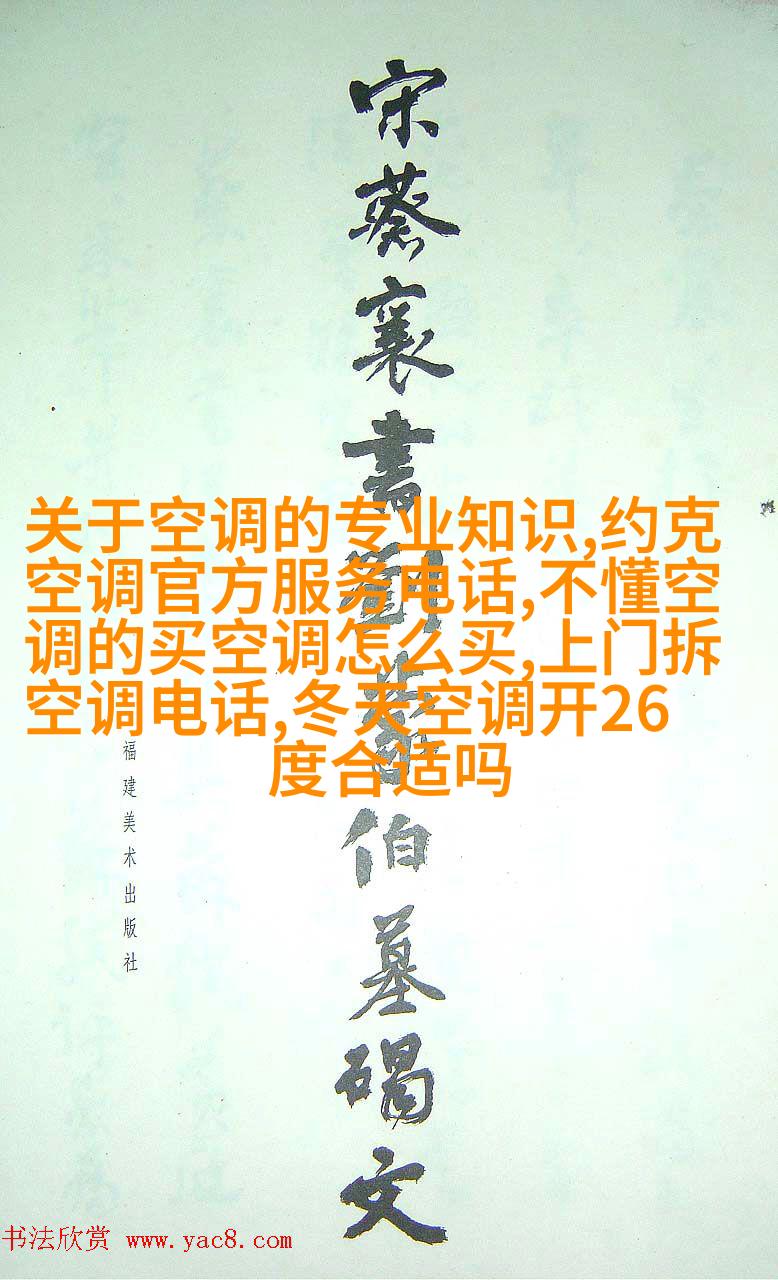 宋蔡襄書劉蒙伯墓碣文
关于空调的专业知识,约克
空调官方服务电话,不懂空
调的买空调怎么买,上门拆
空调电话,冬天空调开26
度合适吗
福建美术出版社
书法欣赏 www.yac8.com